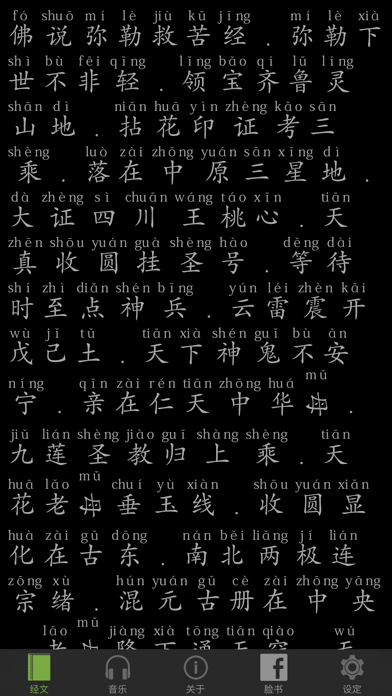 fó shuō mí lè jiù kǔ jīng mí lè xià
佛说弥勒救苦经．弥勒下
shì bù fēi qīng lǐng bǎo qí lǔ líng
世不非轻．领宝齐鲁灵
shān dì niān huā yìn zhèng kǎo sān
山地．拈花印证考三
shèng luò zài zhōng yuán sān xīng dì
乘．落在中原三星地．
dà zhèng sì chuān wáng táo xīn tiān
大证四川王桃心．天
zhēn shōu yuán guà shèng hào děng dài
真收圆挂圣号．等待
shí zhì diǎn shén bīng yún léi zhèn kāi
时至点神兵．云雷震开
wù jǐ tǔ tiān xià shén guǐ bù ān
戊己土．天下神鬼不安
níng qīn zài rén tiān zhōng huá mǔ
宁．亲在仁天中华 ．
jiǔ lián shèng jiào guī shàng shèng tiān
九莲圣教归上乘．天
huā lǎo mǔ chuí yù xiàn shōu yuán xiǎn
花老 垂玉线．收圆显
huà zài gǔ dōng nán běi liǎng jí lián
化在古东．南北两极连
zōng xù hùn yuán gǔ cè zài zhōng yāng
宗绪．混元古册在中央
lǎo mǔ jiàng xià tōng tiān qiào wú
经文 音乐 关于 脸书 设定